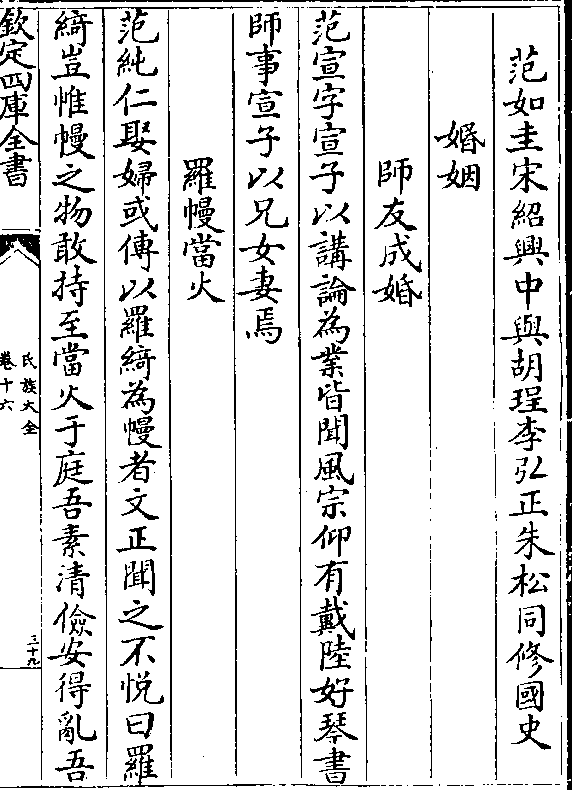 范如圭宋紹興中與胡珵李弘正朱松同修國史
婚姻
師友成婚
范宣字宣子以講論為業皆聞風宗仰有戴陸好琴書
師事宣子以兄女妻焉
羅幔當火
范純仁娶婦或傳以羅綺為幔者文正聞之不悅曰羅
綺豈惟幔之物敢持至當火于庭吾素清儉安得亂吾
欽定四庫全書
氏族大全
卷十六
三十九